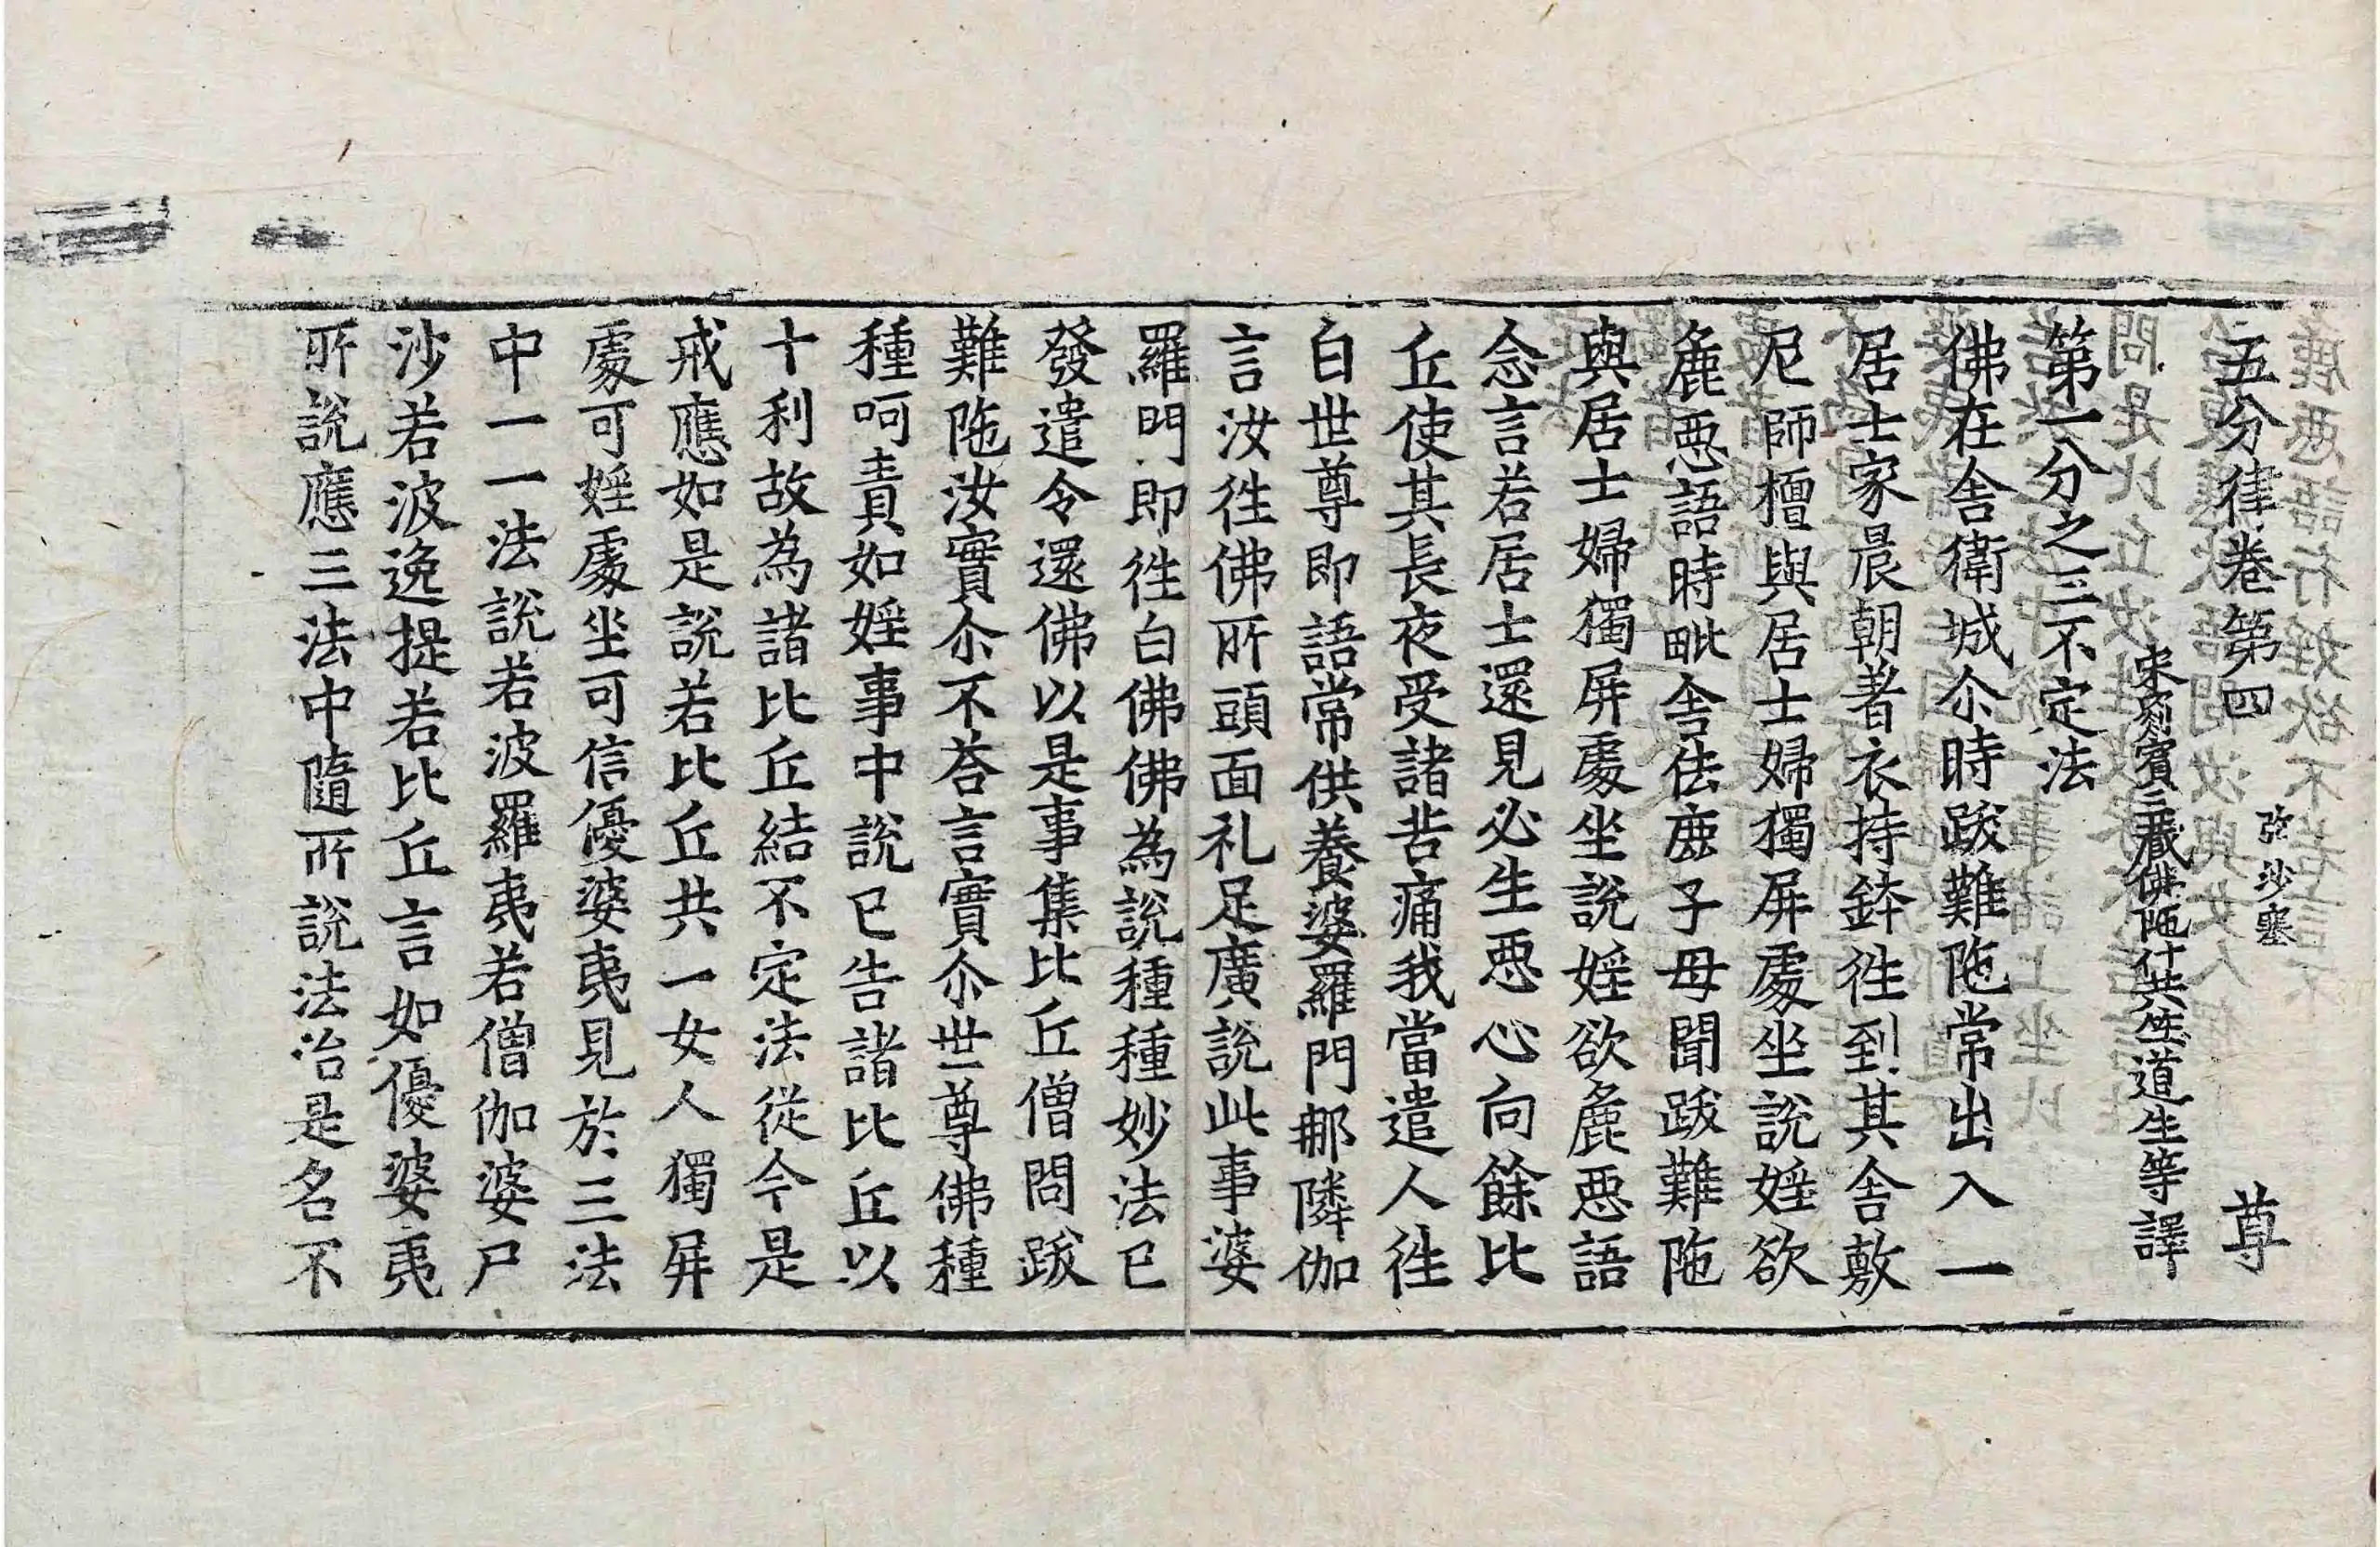 五分律卷第四 弥沙塞 尊
宋罽賓三藏佛陁什共竺道生等譯
第一分之三不定法
佛在舍衛城尒時跋難陁常出入一
居士家晨朝著衣持鉢徃到其舍敷
尼師檀與居士婦獨屏處坐說婬欲
麁惡語時毗舍佉鹿子母聞跋難陁
與居士婦獨屏處坐說婬欲麁惡語
念言若居士還見必生惡心向餘比
丘使其長夜受諸苦痛我當遣人徃
白世尊即語常供養婆羅門𨙻隣伽
言汝徃佛所頭面礼足廣說此事婆
羅門即徃白佛佛為說種種妙法已
發遣令還佛以是事集比丘僧問跋
難陁汝實尒不荅言實尒世尊佛種
種呵責如婬事中說已告諸比丘以
十利故為諸比丘結不定法從今是
戒應如是說若比丘共一女人獨屏
處可婬處坐可信優婆夷見於三法
中一一法說若波羅夷若僧伽婆尸
沙若波逸提若比丘言如優婆夷
所說應三法中隨所說法治是名不